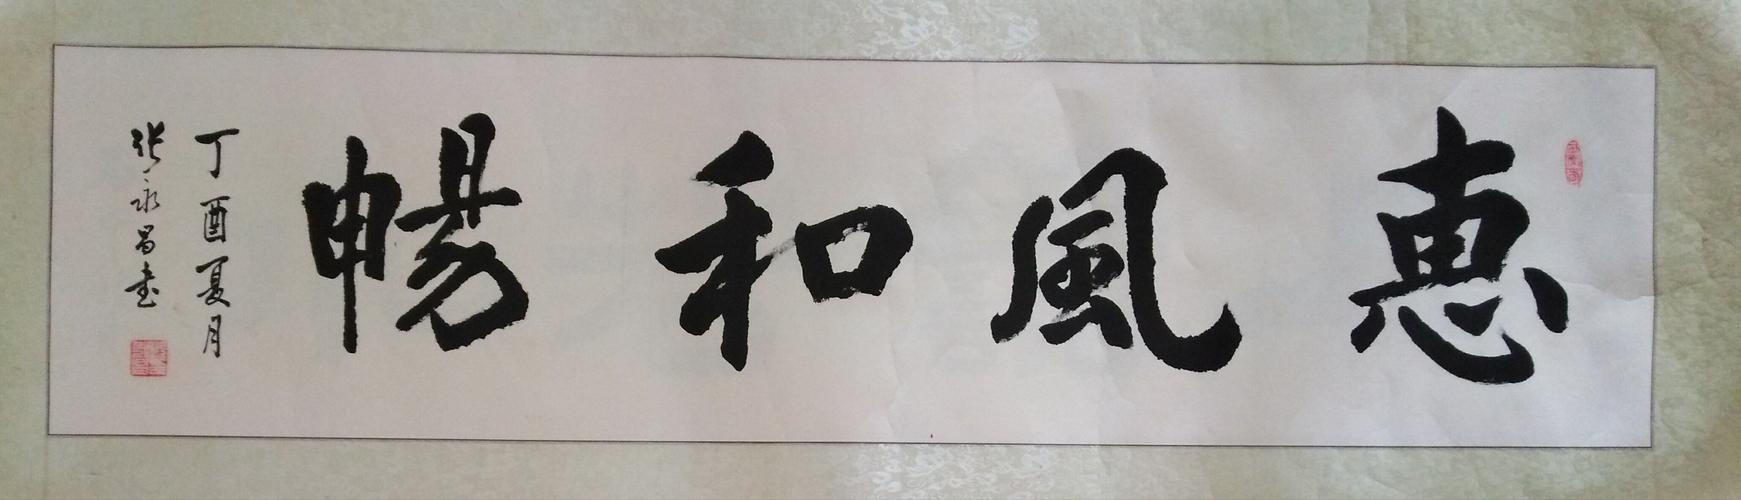 惠風和暢
丁酉夏月
张永昌书